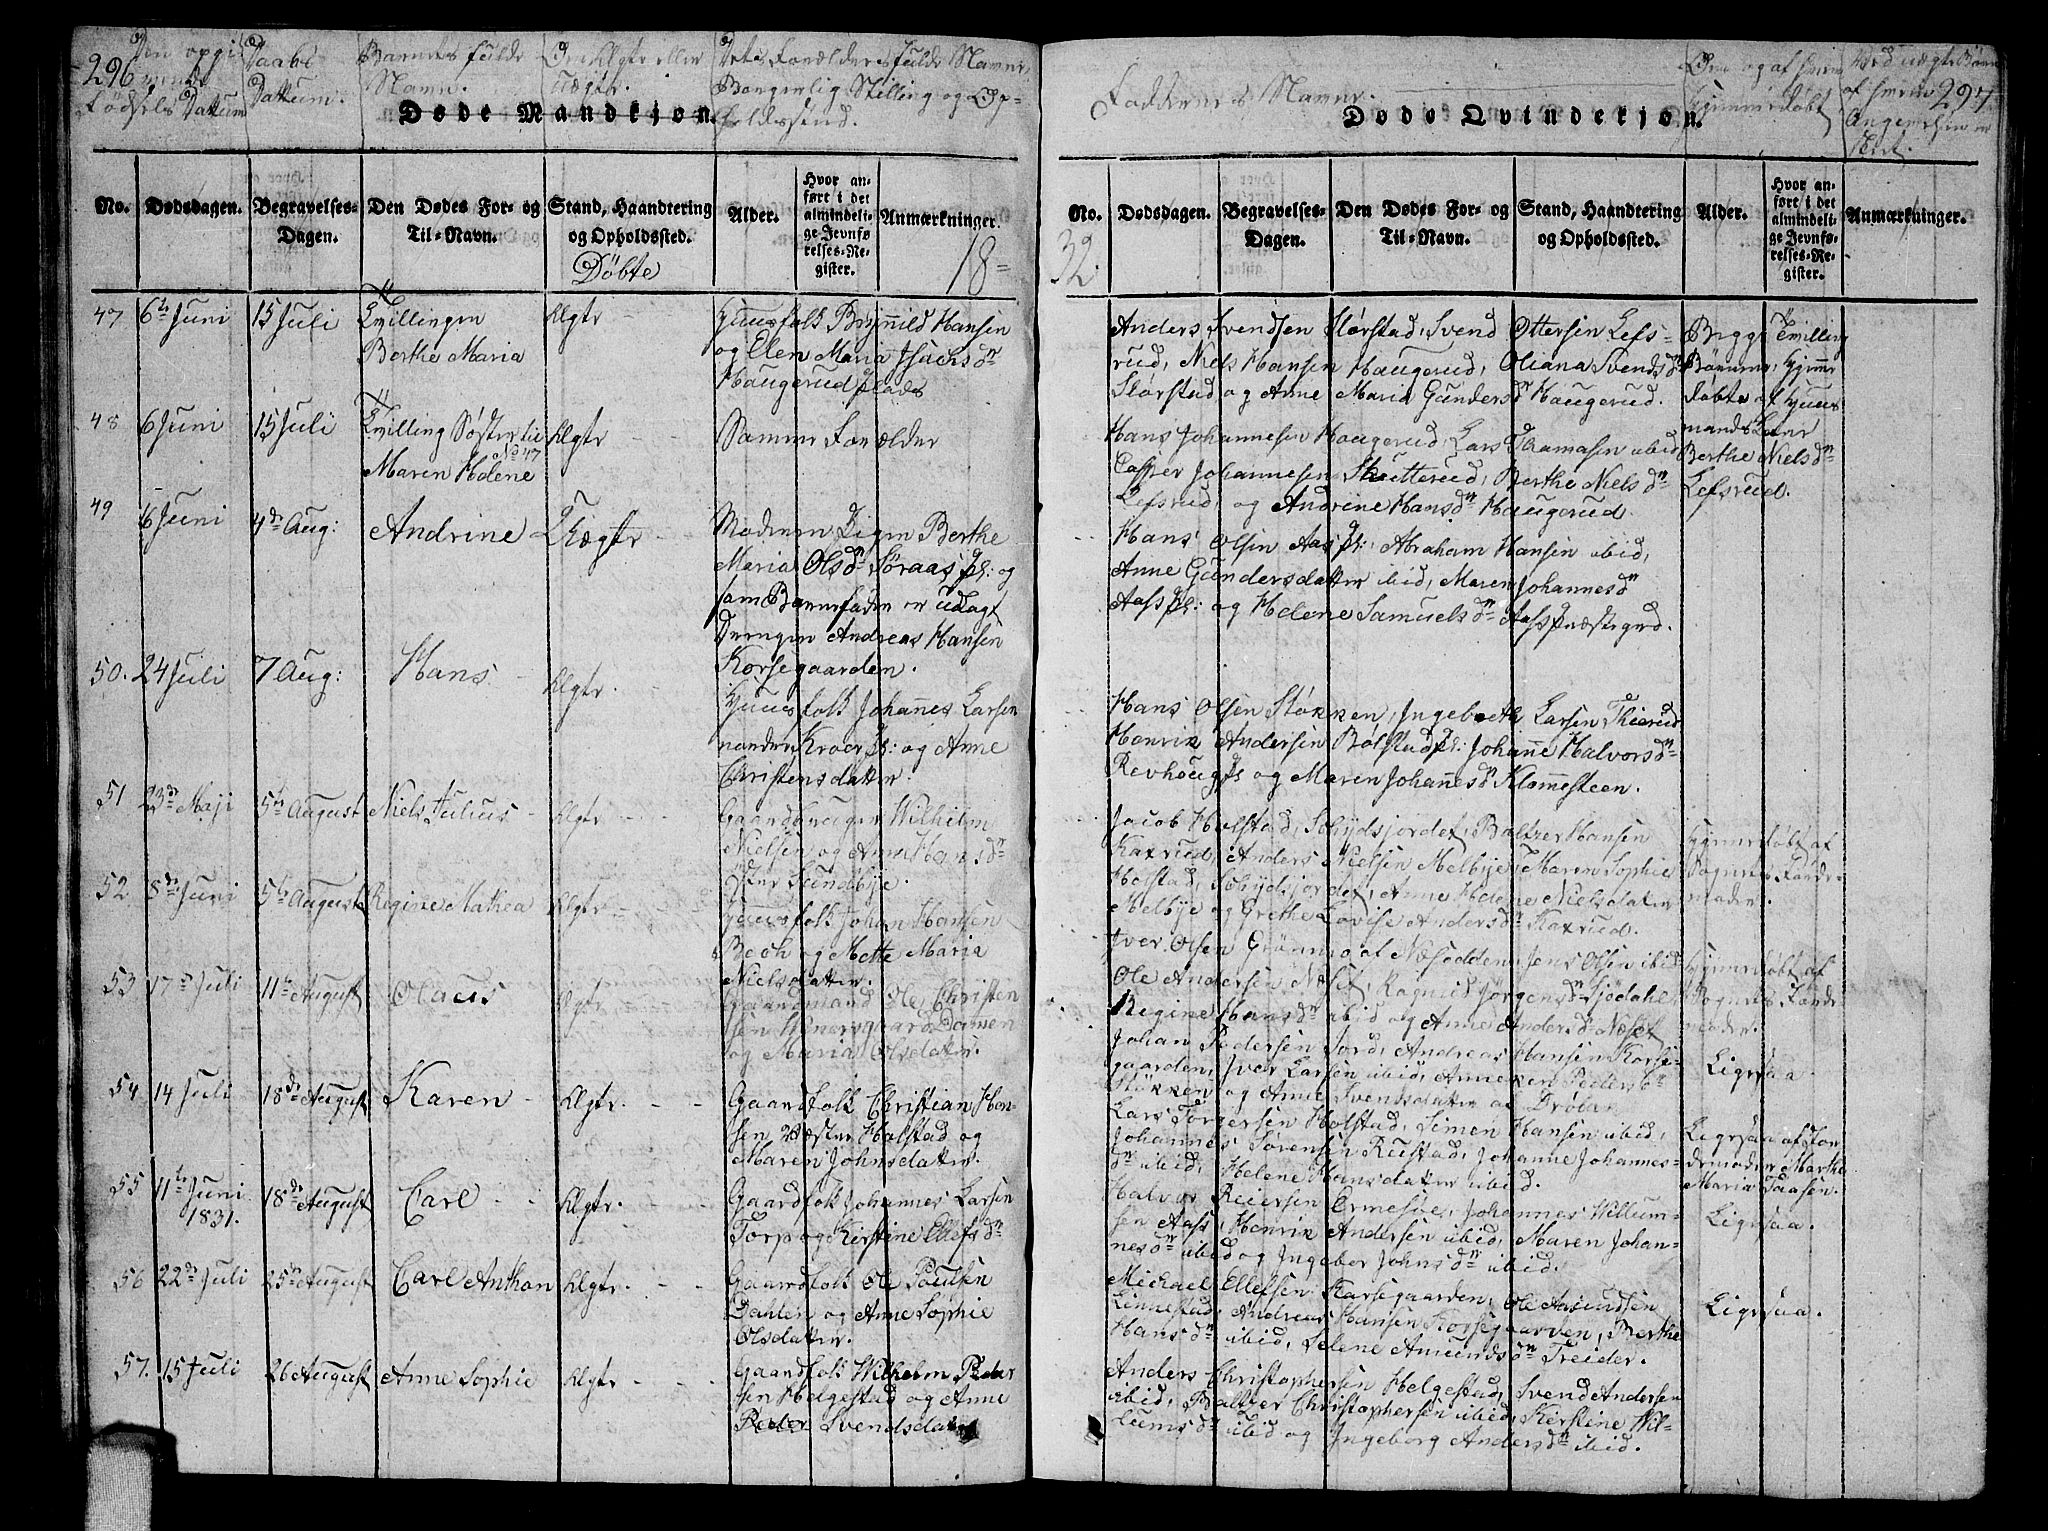 296
Den opgi-
vende
Fødsels Dattum
Daabs
Dattum.
Barnets fulde
Navn.
Om Ægte eller
Uægte.
Dets Forældres fulde Navne,
Borgerlig Stilling og Op-
holdssted.
Døde Mandkjøn.
No.
Dødsdagen.
Begravelses-
Dagen.
Den Dødes For- og
Til-Navn.
Stand, Haandtering
og Opholdssted.
Døbte
Alder.
Hvor an-
ført i det
almindeli-
ge Jevnfø-
relses-Re-
gister.
Anmærkninger.
18=
47
6te Juni
15 Juli
Tvillingen
Berthe Maria
Ægte
Huusfolk Brynnild Hansen
og Elen Maria Isachsdr
Haugerud plads
48
6 Juni
15 Juli
Tvilling Søster til
No 47
Maren Helene
Ægte
Samme Forælder
49
16 Juni
4de Aug:
Andrine
Uægte
Moderen Pigen Berthe
Maria Olsdr Søraas pl: og
som Barnefader er udlagt
Drengen Andreas Hansen
Korsegaarden.
50.
24 Juli
7 Aug:
Hans
Ægte
Huusfolk Johannes Larsen
nordre Kroer pl: og Anne
Christensdatter.
51
23de Maji
5te August
Niels Julius
Ægte
Gaardbruger Wilhelm
Nielsen og Anne Hansdr
Øster Sundbye.
52.
8de Juni
5te August
Regine Mathea
Ægte
Huusfolk Johan Hansen
Boch og Mette Maria
Nielsdatter.
53
17de Juli
11te August
Olaus
Ægte
Gaardmand Ole Christen
sen Korsegaard Damen
og Maria Olsdatter.
54
14 Juli
18de August
Karen
Ægte
Gaardfolk Christian Han-
sen Væster Holstad og
Maren Johnsdatter.
55
11te Juni
1831.
18de August
Carl
Ægte
Gaardfolk Johannes Larsen
Torp og Kirstine Ellefsdr
56
22de Juli
25de August
Carl Anthon
Ægte
Gaardfolk Ole Poulsen
Dahlen og Anne Sophie
Olsdatter.
57.
15 Juli
26 August
Anne Sophie
Ægte
Gaardfolk Wilhelm Peder
sen Helgestad og Anne
Peder Svendsdatter
Faddernes Navne.
Om og af hvem
hjemmedøbt
Ved uægte Børn
af hvem
Angivelsen er
skeet.
297
Døde Qvindekjøn.
No.
Dødsdagen.
Begravelses-
Dagen.
Den Dødes For- og
Til-Navn.
Stand, Haandtering
og Opholdssted.
Alder.
Hvor an-
ført i det
almindeli-
ge Jevnfø-
relses-Re-
gister.
Anmærkninger.
32.
Anders Svendsen Størstad, Svend Ottersen Lefs-
rud, Niels Hansen Haugerud, Oliana Svendsdr
Størstad og Anne Maria Gundersdr Haugerud.
Begge Tvilling
Børnene, hjemme
døbte af Huus
mands Leier
Berthe Nielsdr
Lefsrud.
Hans Johannesen Haugerud, Lars Thomasen ibid
Casper Johannesen Skutterud, Berthe Nielsdr
Lefsrud, og Andrine Hansdr Haugerud.
Hans Olsen Aas pl: Abraham Hansen ibid,
Anne Gundersdatter ibid, Maren Johannesdr
Aass pl: og Helene Samuelsdr Aass Præstegrd.
Hans Olsen Støkken, Ingebreth Larsen Thierud
Henrik Andersen Bølstad pl: Johanne Halvorsdr
Revhoug pl og Maren Johannesdr Klommesteen.
Jacob Holstad, Schydsjordet, Baltzer Hansen
Kaxrud, Anders Nielsen Melbye, Maren Sophie
Holstad, Schydsjordet, Anne Helene Nielsdatter
Melbye og Grethe Lovise Andersdr Kaxrud.
Hjemmedøbt af
Sognets Jorde-
moder.
Iver Olsen Grønmo af Næsodden, Jens Olsen ibid
Ole Andersen Næset, Ragnild Jørgensdr Sjødahl
Regine Hansdr ibid og Anne Andersdr Næset
Hjemmedøbt af
Sognets Jorde-
moder.
Johan Pedersen Jord, Andreas Hansen Korse-
gaarden, Iver Larsen ibid, Anneken Pedersdr
Støkken og Anne Svendsdatter af Drøbak
Ligesaa.
Lars Torgersen Holstad, Simen Hansen ibid,
Johannes Sørensen Rustad, Johanne Johannes-
dr ibid, Helene Hansdatter ibid.
Ligesaa af Jor
demoder Marthe
Maria Taasen.
Halvor Reiersen Ermesøe, Johannes Willum-
sen Aass, Henrik Andersen ibid, Maren Johan-
nesdr ibid og Ingeber Johnsdr ibid.
Ligesaa.
Michael Ellefsen Korsegaarden, Ole Amundsen
Linnestad, Andreas Hansen Korsegaarden, Berthe
Hansdr ibid, Selene Amundsdr Treider.
Ligesaa.
Anders Christophersen Helgestad, Svend Andersen
ibid, Baltzer Christophersen ibid, Kirstine Wil-
lumsdr ibid og Ingeborg Andersdr ibid.